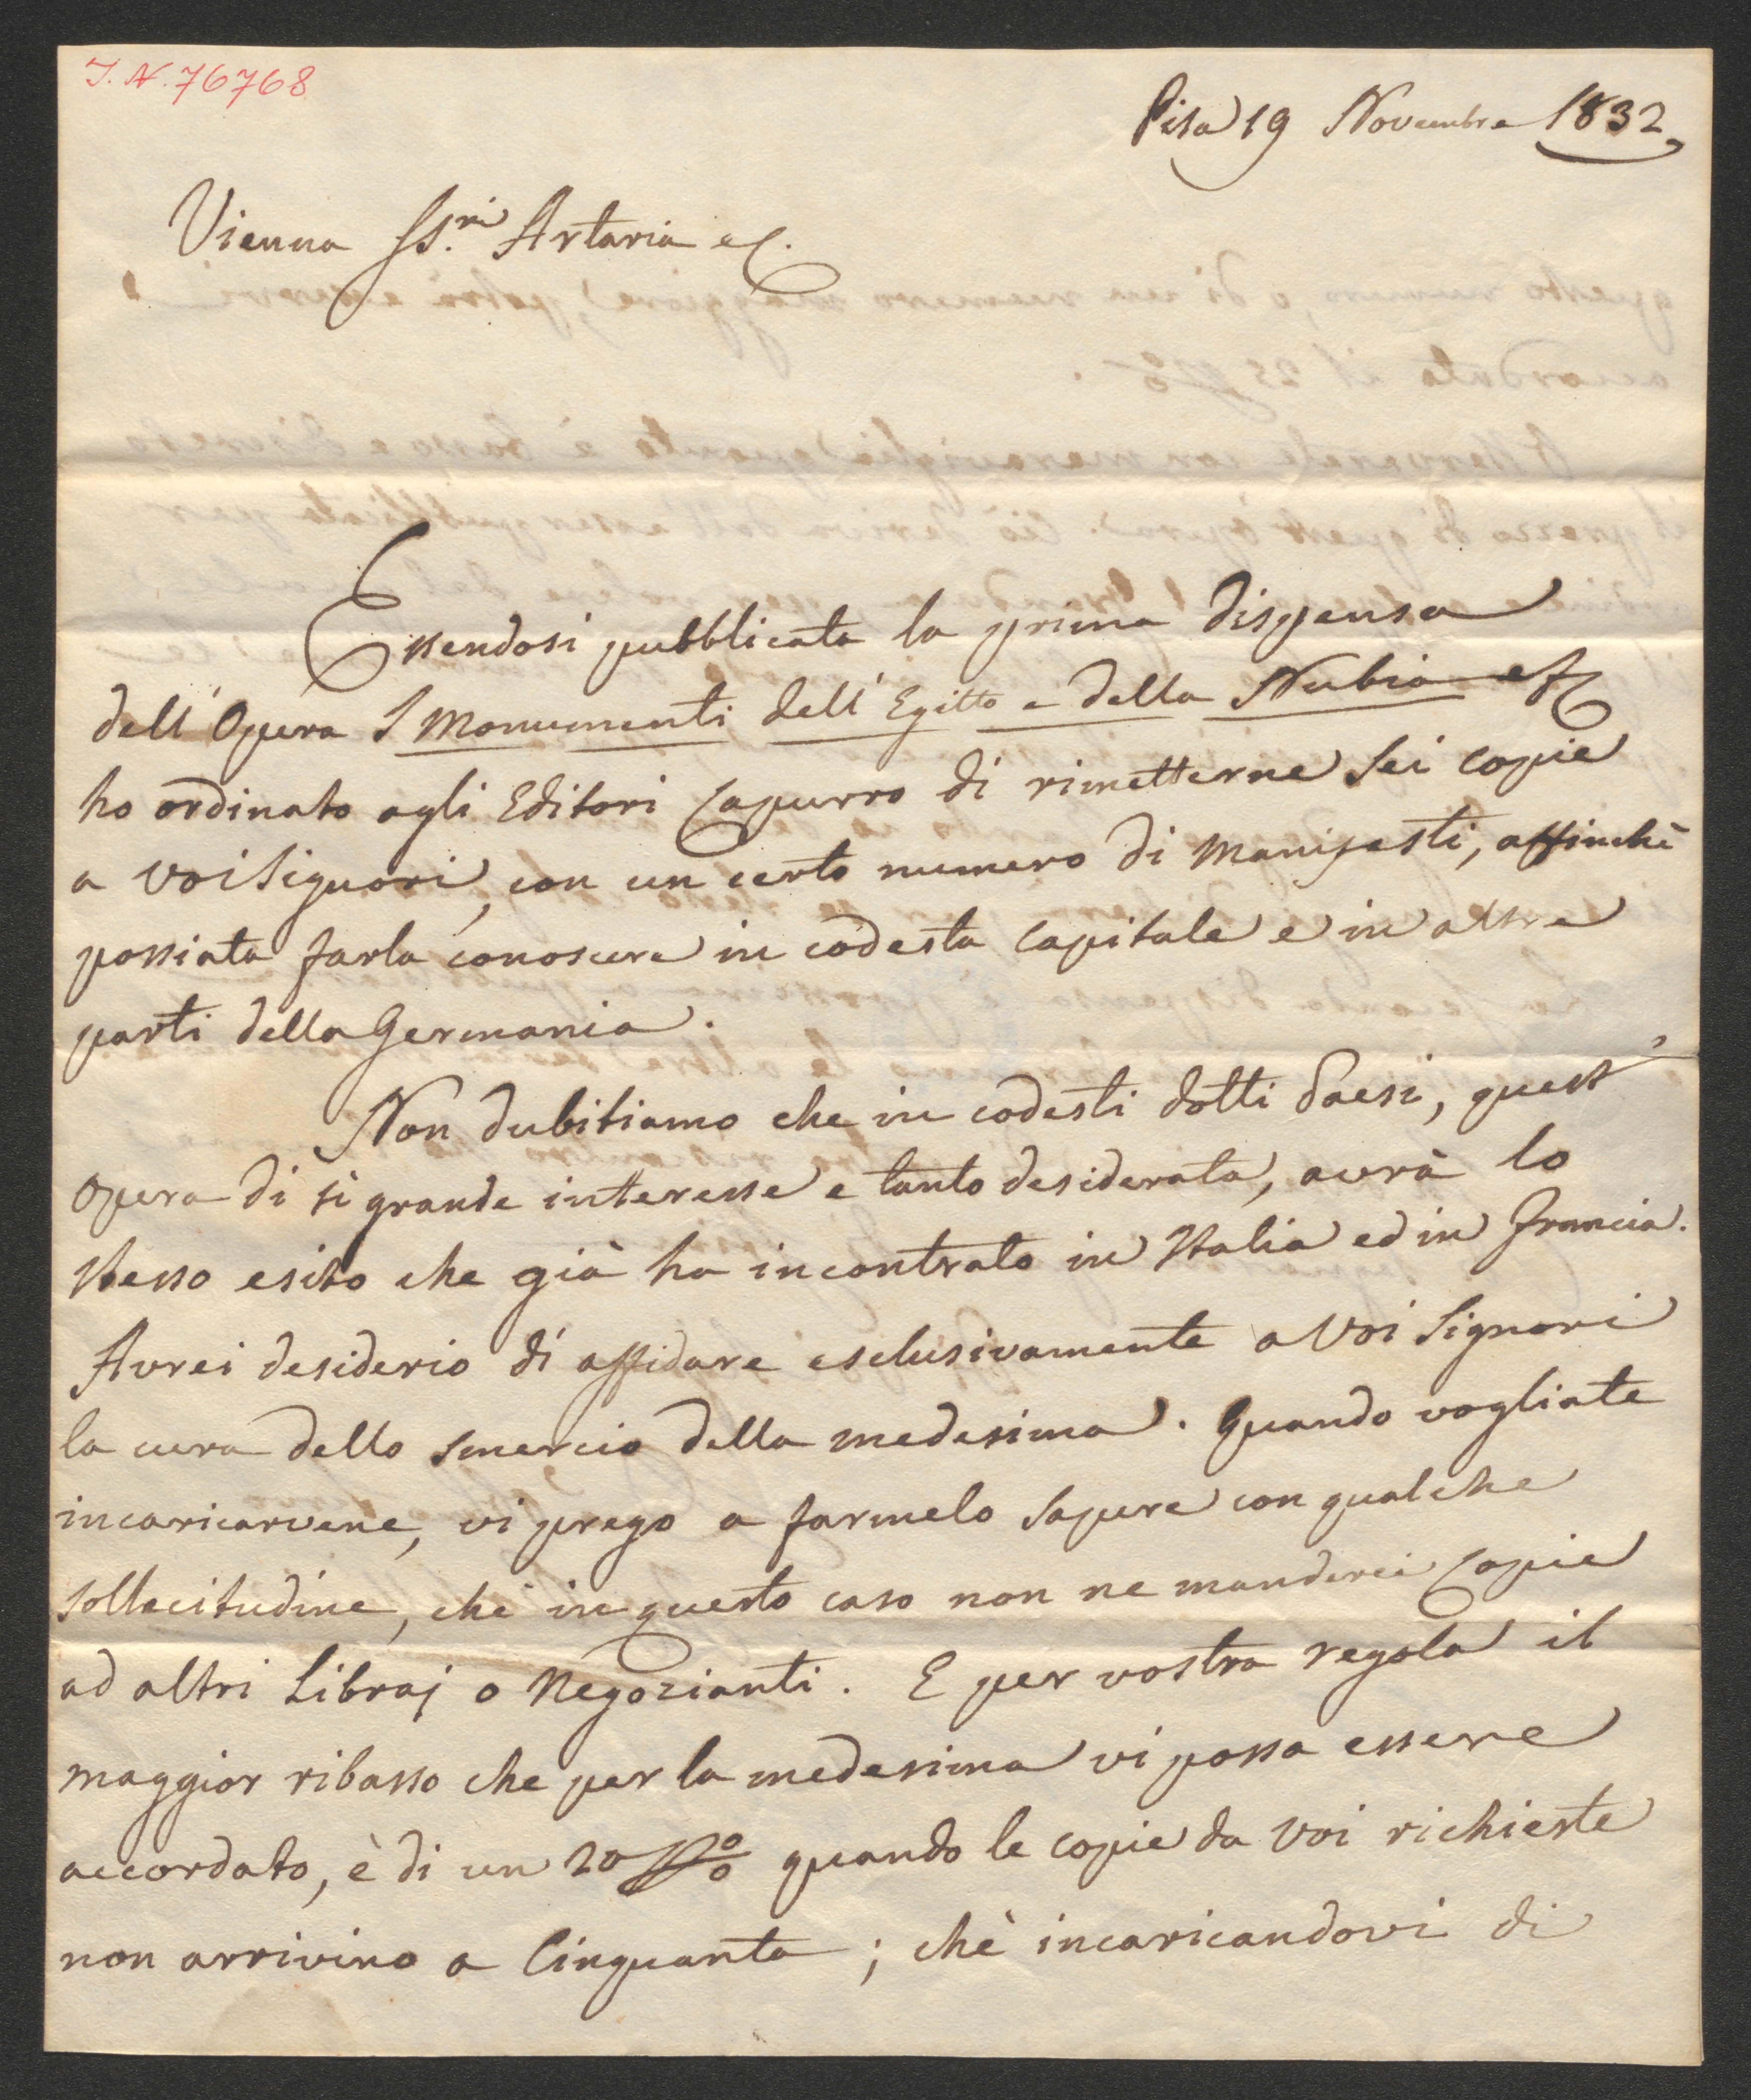 I. N. 76768
Pisa 19 Novembre 1832
Vienna SS.ri Artaria e C.
Essendosi pubblicata la prima dispensa
dell'Opera I Monumenti dell'Egitto e della Nubia ec
ho ordinato agli Editori Capurro di rimetterne Sei Copie
a Voi Signori, con un certo numero di Manifesti, affinchè
possiate farla conoscere in codesta Capitale e in altre
parti della Germania.
Non dubitiamo che in codesti dotti Paesi, quest'
Opera di sì grande interesse e tanto desiderata, avrà lo
stesso esito che già ha incontrato in Italia ed in Francia.
Avrei desiderio di affidare esclusivamente a Voi Signori
la cura dello smercio della medesima. Quando vogliate
incaricarvene, vi prego a farmelo sapere con qualche
sollecitudine, chè in questo caso non ne manderei Copie
ad altri Libraj o Negozianti. E per vostra regola il
maggior ribasso che per la medesima vi possa essere
accordato, è di un 20 p% quando le copie da Voi richieste
non arrivino a Cinquanta; chè incaricandovi di